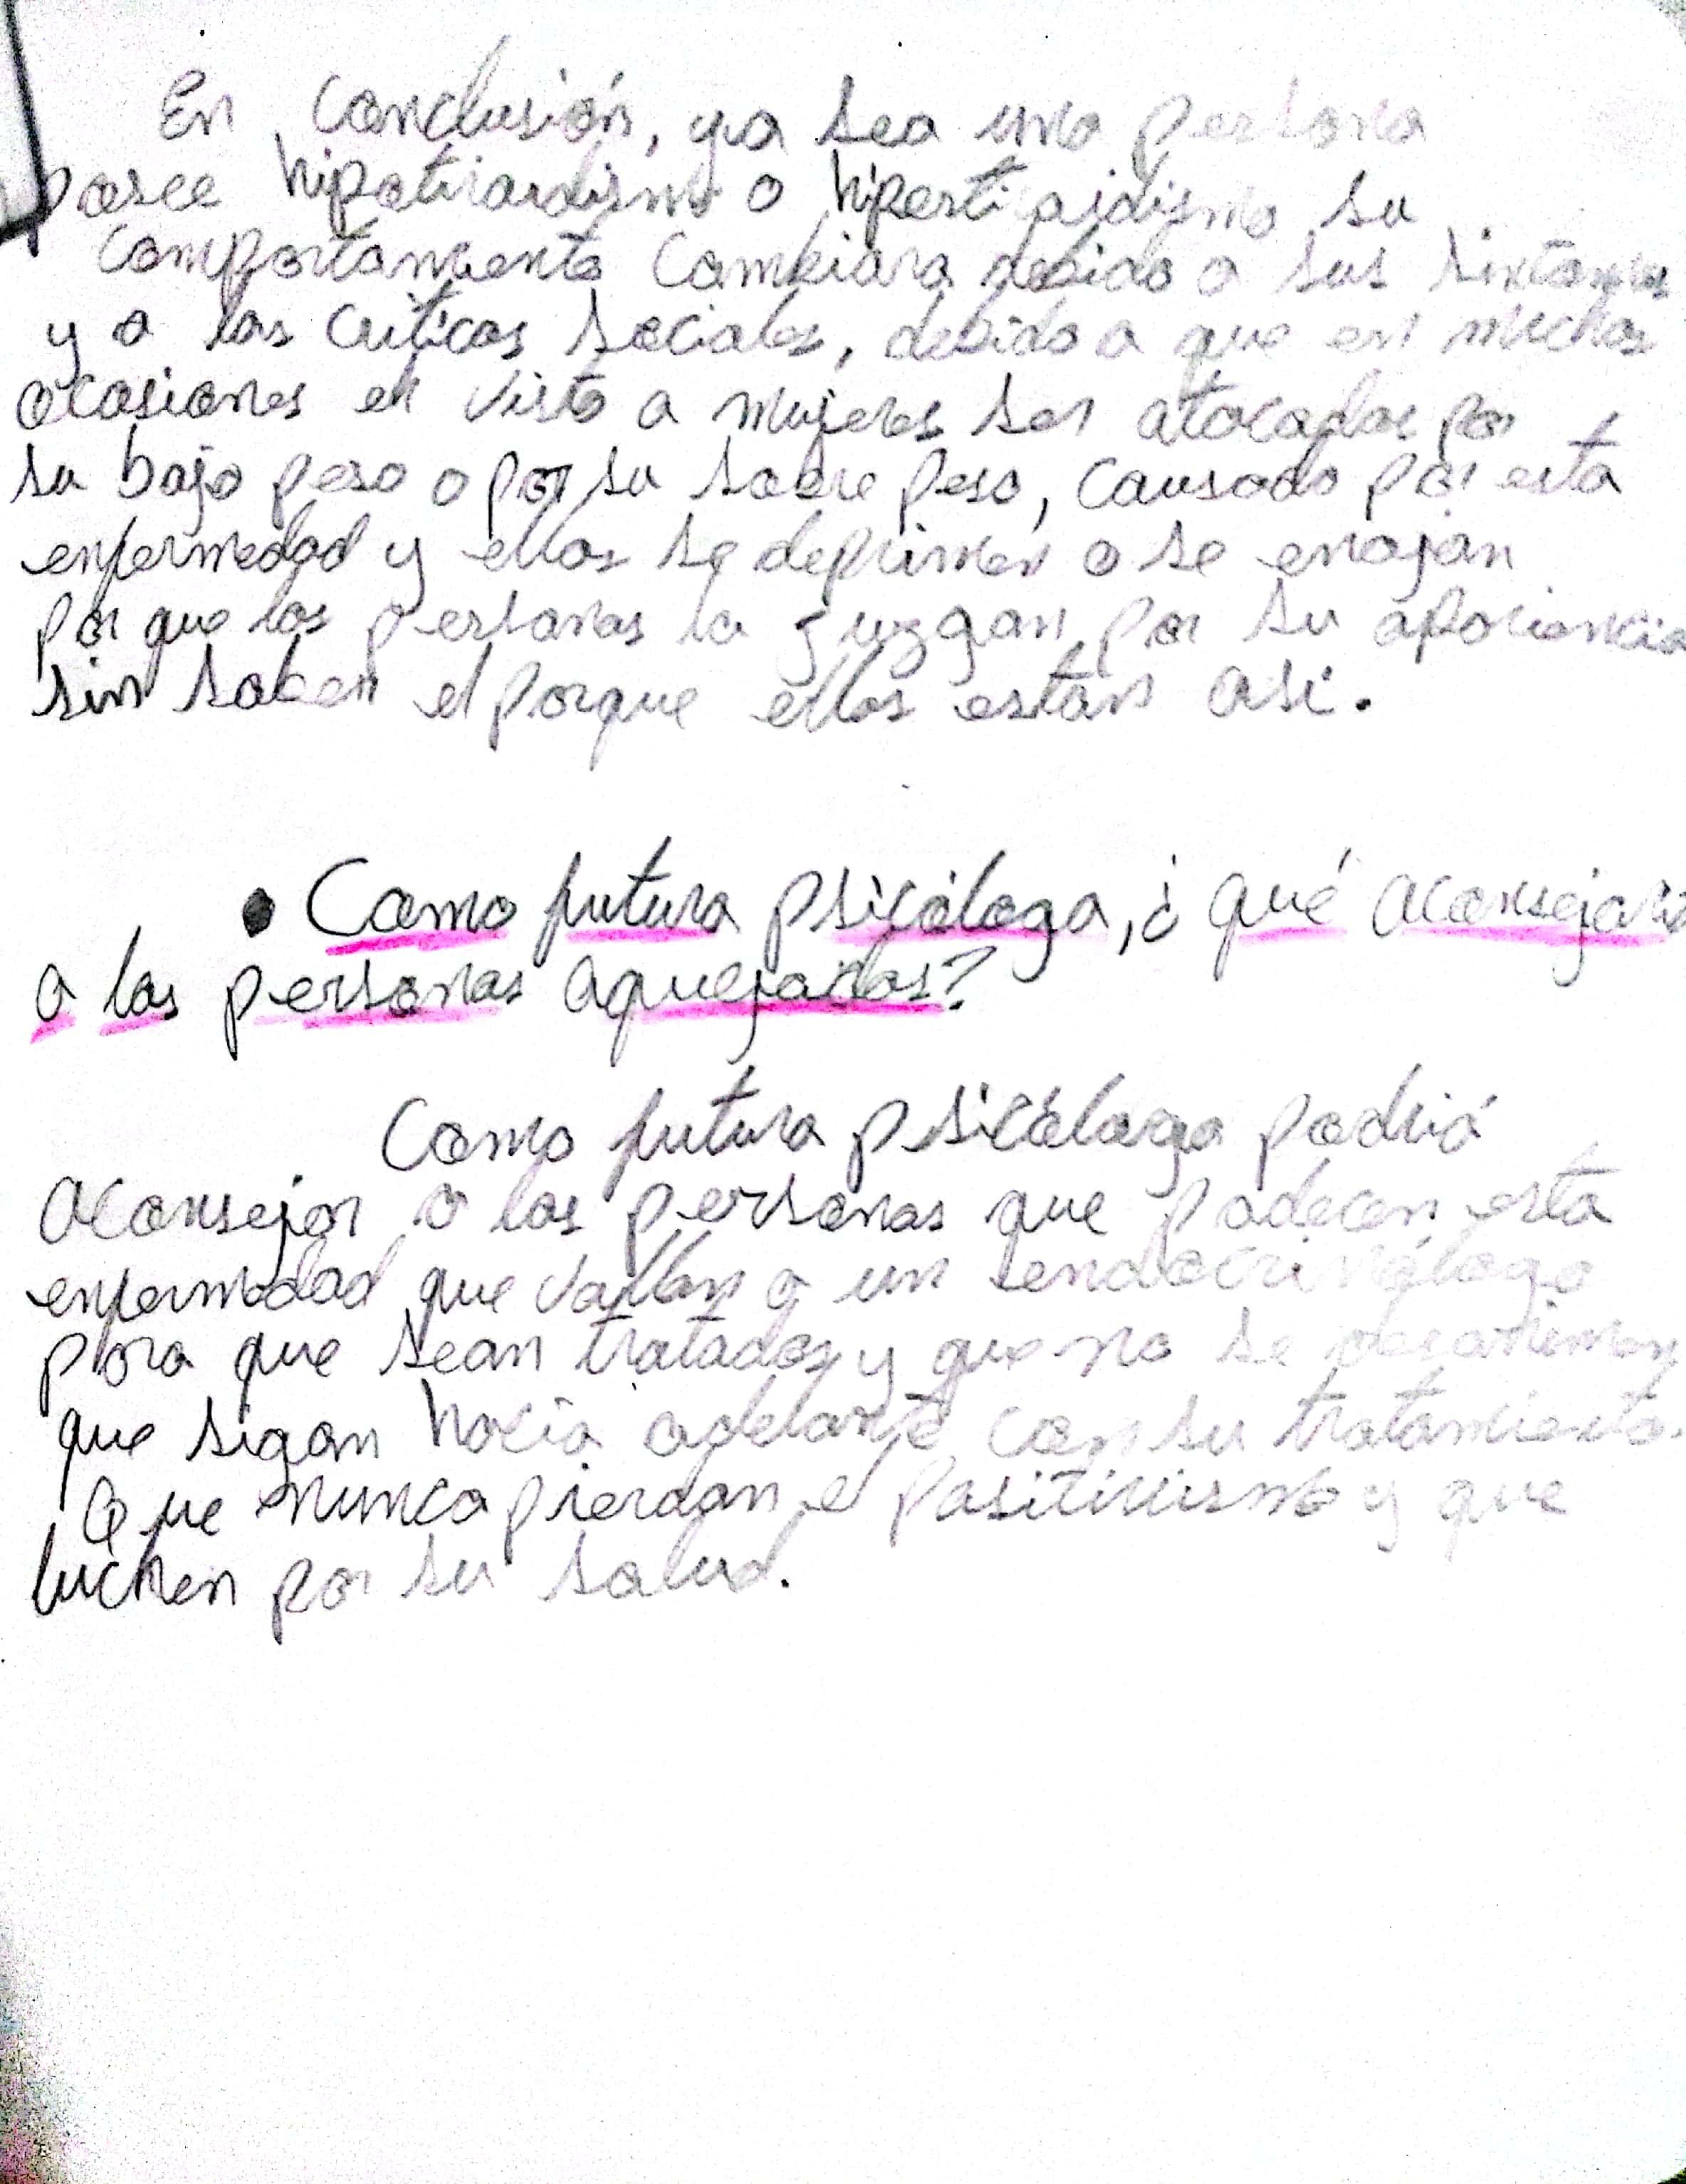 En conclusión, ya sea una persona
posee hipotiroidismo o hipertiroidismo su
comportamiento cambiara debido a sus sintomas
y a las criticas sociales, debido a que en muchas
ocasiones en visto a mujeres ser atacadas por
su bajo peso o por su sobre peso, causado por esta
enfermedad y ellas se deprimen o se enojan
por que las personas la juzgan por su apariencia
sin saber el porque ellas están asi.
• Como futura psicóloga, ¿qué aconsejaria
a las personas aquejadas?
Como futura psicóloga podriá
aconsejar a las personas que padecen esta
enfermedad que vallan a un endocrinólogo
para que sean tratados y que no se desanimen
que sigan hacia adelante con su tratamiento.
Que nunca pierdan el positivismo y que
luchen por su salud.